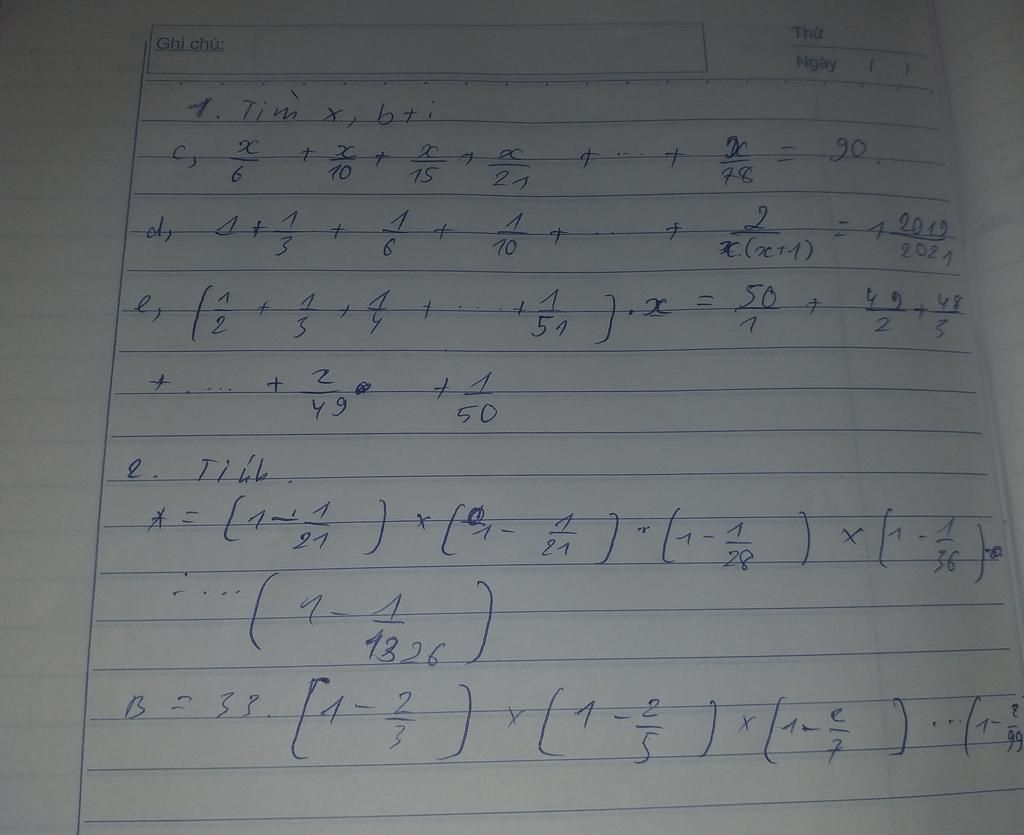 Ghi chú:
Thứ
Ngày / /
1. Tìm x, b+i
c, x/6 + x/10 + x/15 + x/21 + ... + x/78 = 90.
d, 1 + 1/3 + 1/6 + 1/10 + ... + 2/x.(x+1) = 1 2019/2021
e, (1/2 + 1/3 + 1/4 + ... + 1/51) . x = 50/1 + 49/2 + 48/3
+ .... + 2/49 + 1/50
2. Tính.
A = (1 - 1/21) × (1 - 1/21) × (1 - 1/28) × (1 - 1/36)
..... (1 - 1/1326)
B = 33. (1 - 2/3) × (1 - 2/5) × (1 - 2/7) ... (1 - 2/99